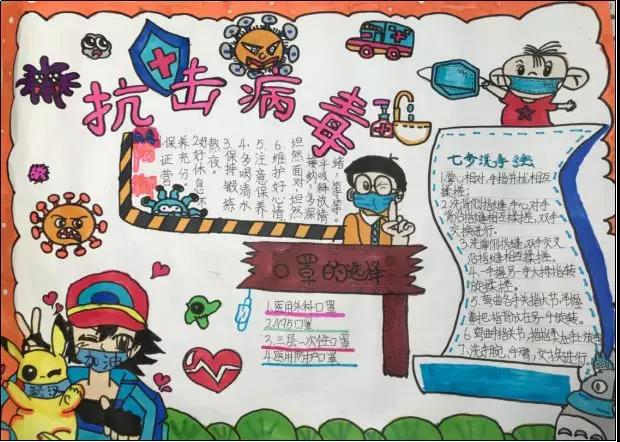 抗击病毒
防御
1.保证营
养充分。
2.好好休息不
熬夜。
3.保持锻炼
4.多喝清水
5.注意保养
6.维护好心情
坦然面对,坦然
七步洗手
1.掌心相对,手指并拢相互
揉搓;
2.洗背侧指缝 手心对手
背沿指缝相互揉搓,双手
交换进行。
3.洗掌侧指缝,双手交叉
沿指缝相互揉搓。
4.一手握另一手大拇指旋转
揉搓。
5.弯曲各手指关节,半握
拳把指背放在另一手旋转。
6.弯曲手指关节,
7.洗手腕,手臂,交换进行。
口罩的选择
1.医用外科口罩
2.N95口罩
3.三层一次性口罩
4.医用防护口罩
加油
武汉